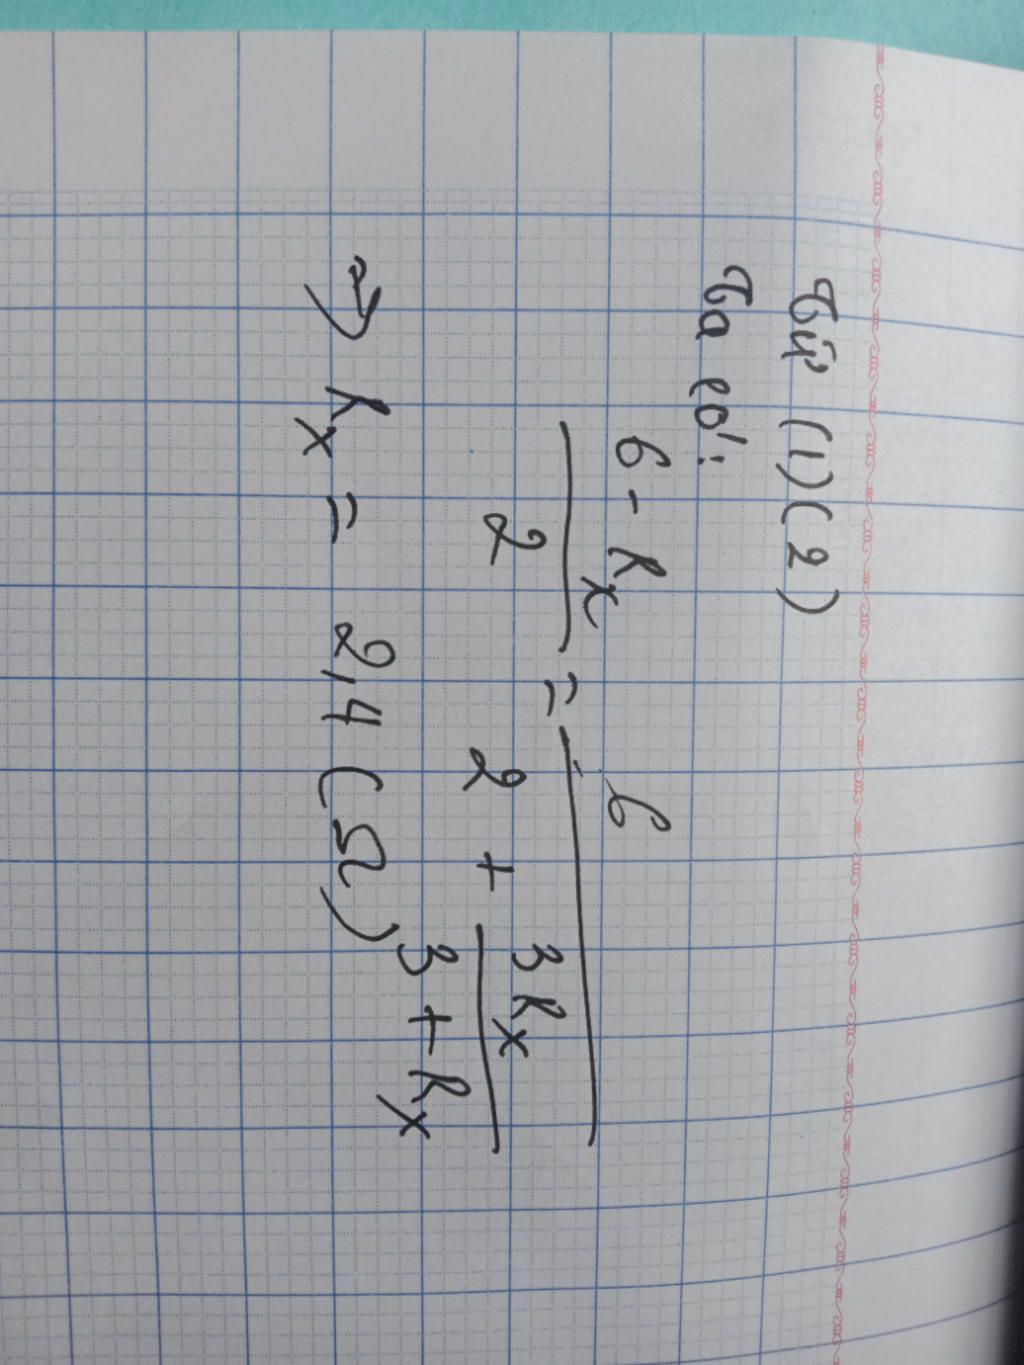 Từ (1)(2)
Ta có:
6 - Rx / 2 = 6 / 2 + 3Rx / 3 + Rx
→ Rx = 2,4 (Ω)